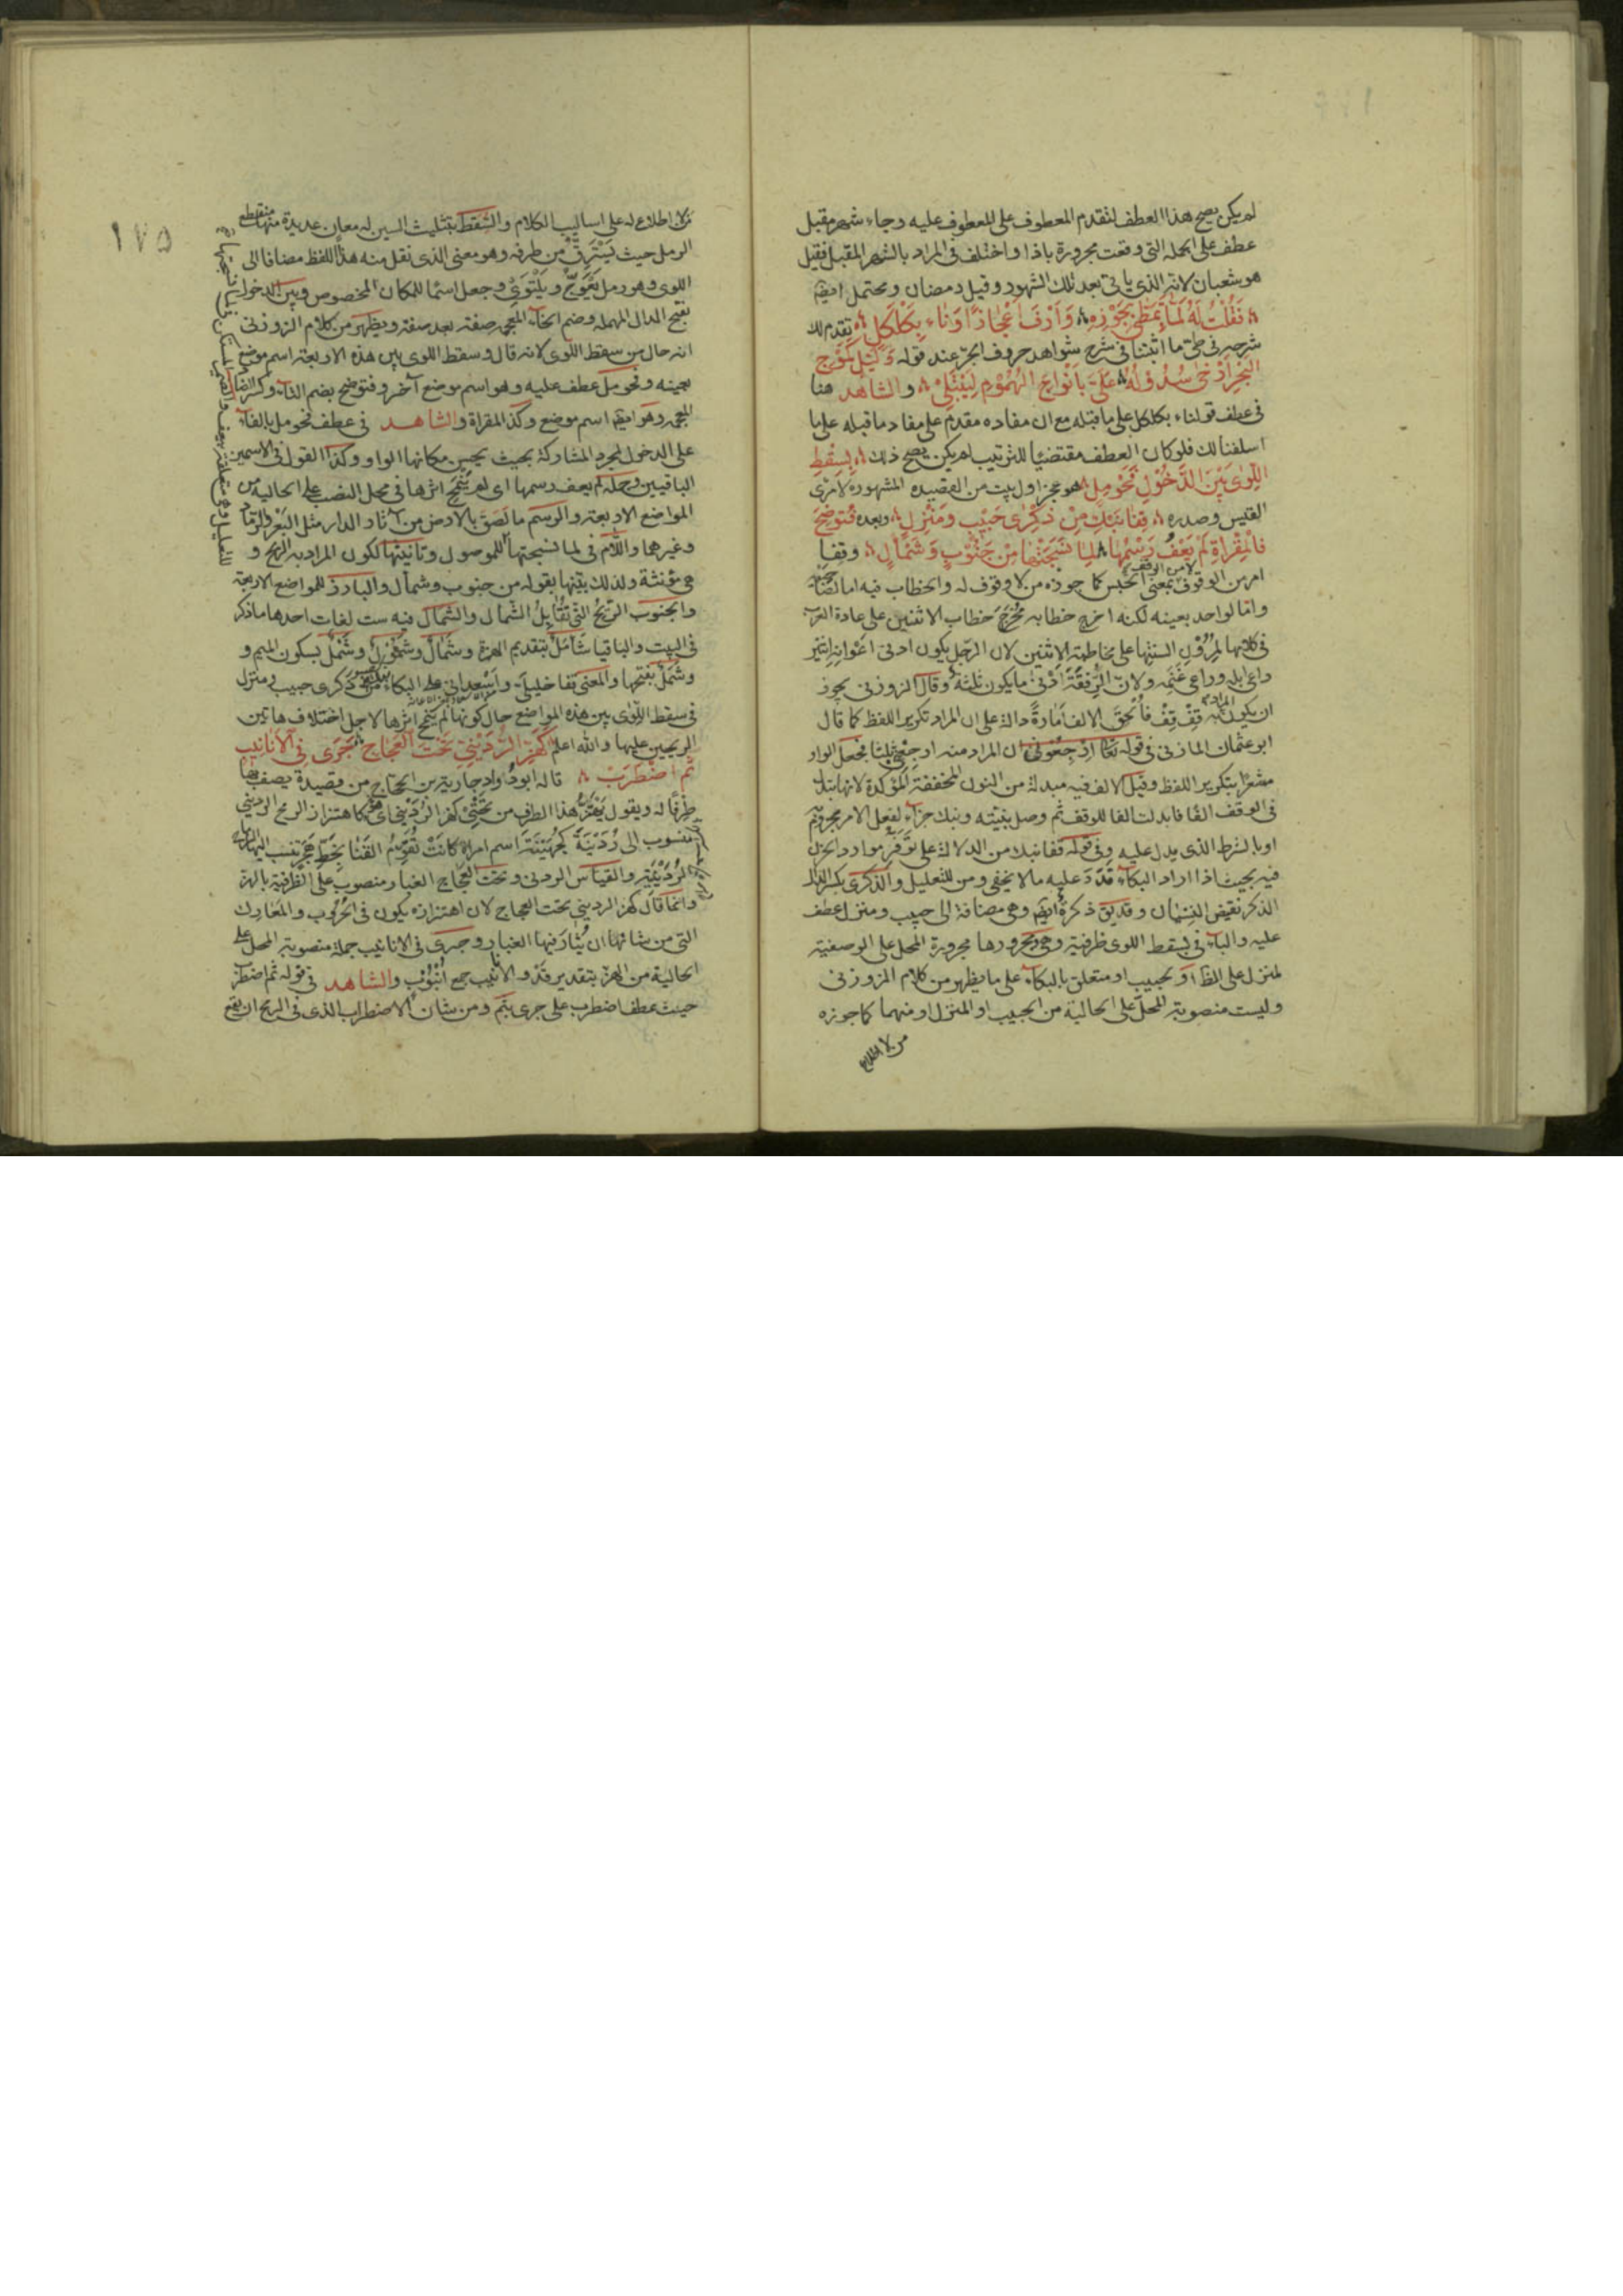 لم يكن يصح هذا العطف لتقدم المعطوف على المعطوف عليه وجاء شهر مقبل
عطف على الجملة التى وقعت مجرورة باذا واختلف فى المراد بالشهر المقبل فقيل
هو شعبان لانه الذى ياتى بعد تلك الشهور وقيل رمضان ويحتمل ايضا
فَقُلْتُ لَهُ لَمَّا تَمَطّٰى بِجَوْزِهِ وَاَرْدَفَ اَعْجَازًا وَنَاءَ بِكَلْكَلِ تقدم لك
شرحه فى طى ما اثبتنا فى شرح شواهد حروف الجر عند قوله وَلَيْلٍ كَمَوْجِ
الْبَحْرِ اَرْخٰى سُدُوْلَهُ عَلَىَّ بِاَنْوَاعِ الْهُمُوْمِ لِيَبْتَلِىْ والشاهد هنا
فى عطف قوله ناء بكلكل على ما قبله مع ان مفاده مقدم على مفاد ما قبله على ما
اسلفنا لك فلو كان العطف مقتضيًا للترتيب لم يكن يصح ذلك بِسِقْطِ
اللِّوٰى بَيْنَ الدَّخُوْلِ فَحَوْمَلِ هو عجز اول بيت من القصيده المشهورة لامرئ
القيس وصدره قِفَا نَبْكِ مِنْ ذِكْرٰى حَبِيْبٍ وَمَنْزِلِ وبعده فَتُوْضِحَ
فَالْمِقْرَاةِ لَمْ يَعْفُ رَسْمُهَا لِمَا نَسَجَتْهَا مِنْ جَنُوْبٍ وَشَمْأَلِ وقفا
امر من الوقوف بمعنى الحبس لا من الوقف كما جوزه من لا وقوف له والخطاب فيه اما لصاحبيه
واما لواحد بعينه لكنه اخرج خطابه مُخْرَجَ خطاب الاثنين على عادة العرب
فى كلامها لمرون السنتها على مخاطبة الاثنين لان الرجل يكون ادنى اَعْوَانِهِ اثنين
راعى ابله وراعى غَنَمِه ولان الرُّفْقَةَ اَدْنى ما يكون ثلثة وقال الزوزنى يجوز
ان يكون المراد به قِفْ قِفْ فاُلحق الالف اَمَارَةً دالة على ان المراد تكرير اللفظ كما قال
ابو عثمان المازنى فى قوله تعا ارْجِعُونِ ان المراد منه ارجعنى ثلثا فجعل الواو
مشعرًا بتكرير اللفظ وقيل الالف فيه مبدلة من النون المخففة المؤكدة لانها تبدل
فى الوقف الفًا فابدلت الفا للوقف ثم وصل بنيته ونبك جزاء لفعل الامر مجزوم به
او بالشرط الذى يدل عليه وفى قوله قفا نبك من الدلالة على تَوَفُّرِ مواد الحزن
فيه بحيث اذا اراد البكاء قَدَرَ عليه ما لا يخفى ومن للتعليل والذكرى بكسر الذال
الذكر نقيض النِسْيان وقد يق ذكرة ايضا وهى مضافة الى حبيب ومنزل عطف
عليه والباء فى بسقط اللوى ظرفية وهى ومجرورها مجرورة المحل على الوصفية
لمنزل على الظ او لحبيب او متعلق بالبكاء على ما يظهر من كلام الزوزنى
وليست منصوبة المحل على الحالية من الحبيب او المنزل او منهما كما جوزه
من لا اطلاع
١٧٥
من لا اطلاع له على اساليب الكلام والسقط بتثليث السين له معان عديدة منها منقطع
الرمل حيث يَسْتَرِقُّ من طرفه وهو معنى الذى نقل منه هذا اللفظ مضافا الى
اللوى وهو رمل يَعْوَجُّ ويَلْتَوِىْ وجعل اسمًا للمكان المخصوص وبين الدخول
بفتح الدال المهملة وضم الخاء المعجمه صفة بعد صفة ويظهر من كلام الزوزنى
انه حال من سقط اللوى لانه قال وسقط اللوى بين هذه الاربعة اسم موضع
بعينه وحومل عطف عليه وهو اسم موضع آخر وفتوضح بضم التاء وكسر الضاد
المعجمه وهو ايضا اسم موضع وكذا المقراة والشاهد فى عطف فحومل بالفاء
على الدخول لمجرد المشاركة بحيث يحسن مكانها الواو وكذا القول فى الاسمين
الباقيين وجملة لم يعف رسمها اى لم يَنْمَحِ اثرها فى محل النصب على الحالية من
المواضع الاربعة والرسم ما لَصَقَ بالارض من آثار الدار مثل البَعْر والرَّمَاد
وغيرهما واللام فى لما نسجتها للموصول وتانيثها لكون المراد به الريح و
هى مؤنثة ولذلك بيّنها بقوله من جنوب وشمأل والبارز للمواضع الاربعة
والجنوب الرِّيحُ التى تُقَابِلُ الشمال والشمال فيه ست لغات احدها ما ذكر
فى البيت والباقيا شَأْمَلٌ بتقديم الهمزة وشَمَالٌ وشَمُوْلٌ وشَمْلٌ بسكون الميم و
شَمَلٌ بفتحها والمعنى قفا خليلىَّ واَسْعِدانى على البكاء من ذكرى حبيب ومنزل
فى سقط اللِّوى بين هذه المواضع حال كونها لم ينمح اثرها لاجل اختلاف هاتين
الريحين عليها والله اعلم كَهَزِّ الرُّدَيْنِىِّ تَحْتَ الْعَجَاجِ جَرٰى فِى الْاَنَابِيْبِ
ثُمَّ اضْطَرَبْ قاله ابو دُوَاد جارية بن الحجاج من قصيدة يصف بها
طِرْفًا له ويقول يَهْتَزُّ هذا الطرف من تحتى كهز الرُّدَيْنِى اى كاهتزاز الرمح الردينى
منسوب الى رُدَيْنَةَ كَجُهَيْنَةَ اسم امراة كانَتْ تُقَوِّمُ القَنَا بِخَطِّ هَجَرَ تنسب اليها الرماح
الرُّدَيْنِيَّة والقياس الردنى وتحت العَجَاج الغبار منصوب على الظرفية بالهز
وانما قال كهز الردينى تحت العجاج لان اهتزازه يكون فى الحُرُوب والمعارك
التى من شانها ان يُثَار فيها الغبار وجرى فى الانابيب جملة منصوبة المحل على
الحالية من الهز بتقدير قَدْ والانابيب جمع اُنْبُوْبٍ والشاهد فى قوله ثم اضطرب
حيث عطف اضطرب على جرى بثم ومن شان الاضطراب الذى فى الرمح ان يقع